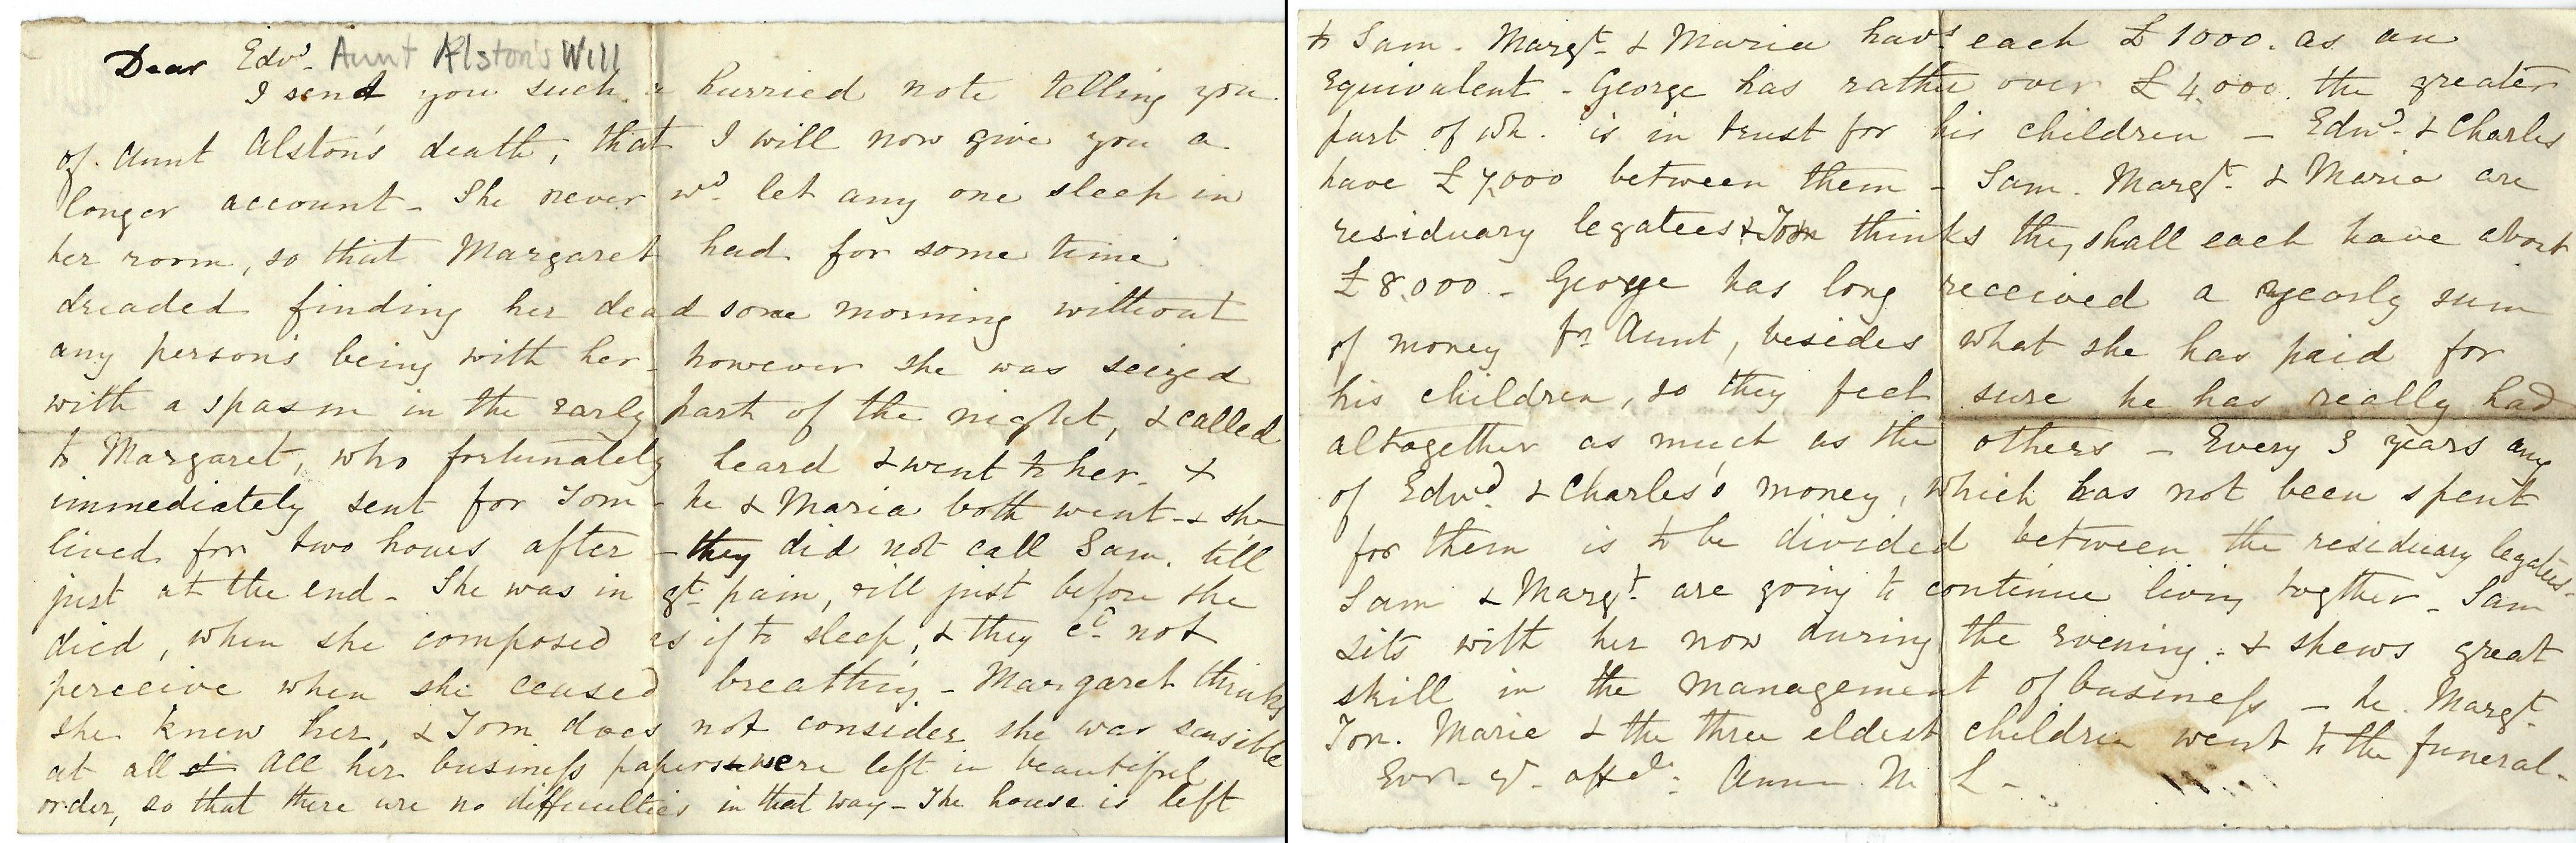 Dear Edwd. Aunt Alston's Will
I send you such a hurried note telling you
of Aunt Alston's death, that I will now give you a
longer account - She never wd. let any one sleep in
her room, so that Margaret had for some time
dreaded finding her dead some morning without
any person's being with her - however she was seized
with a spasm in the early part of the night, & called
to Margaret, who fortunately heard & went to her - &
immediately sent for Tom - he & Maria both went - & she
lived for two hours after - they did not call Sam. till
just at the end - She was in gt. pain, till just before she
died, when she composed as if to sleep, & they cd. not
perceive when she ceased breathing - Margaret thinks
she knew her, & Tom does not consider she was sensible
at all All her business papers were left in beautiful
order, so that there are no difficulties in that way - The house is left
to Sam - Margt. & Maria have each £1000. as an
equivalent - George has rather over £4,000. the greater
part of wh. is in trust for his children - Edwd. & Charles
have £7,000 between them - Sam. Margt. & Maria are
residuary legatees & Tom thinks they shall each have about
£8,000 - George has long received a yearly sum
of money fr. Aunt, besides what she has paid for
his children, so they feel sure he has really had
altogether as much as the others - Every 3 years any
of Edwd. & Charles's money, which has not been spent
for them is to be divided between the residuary legatees -
Sam & Margt. are going to continue living together - Sam
sits with her now during the evening - & shews great
skill in the management of business - he. Margt.
Tom. Maria & the three eldest children went to the funeral -
Evr. yr. affec. Anne M L -